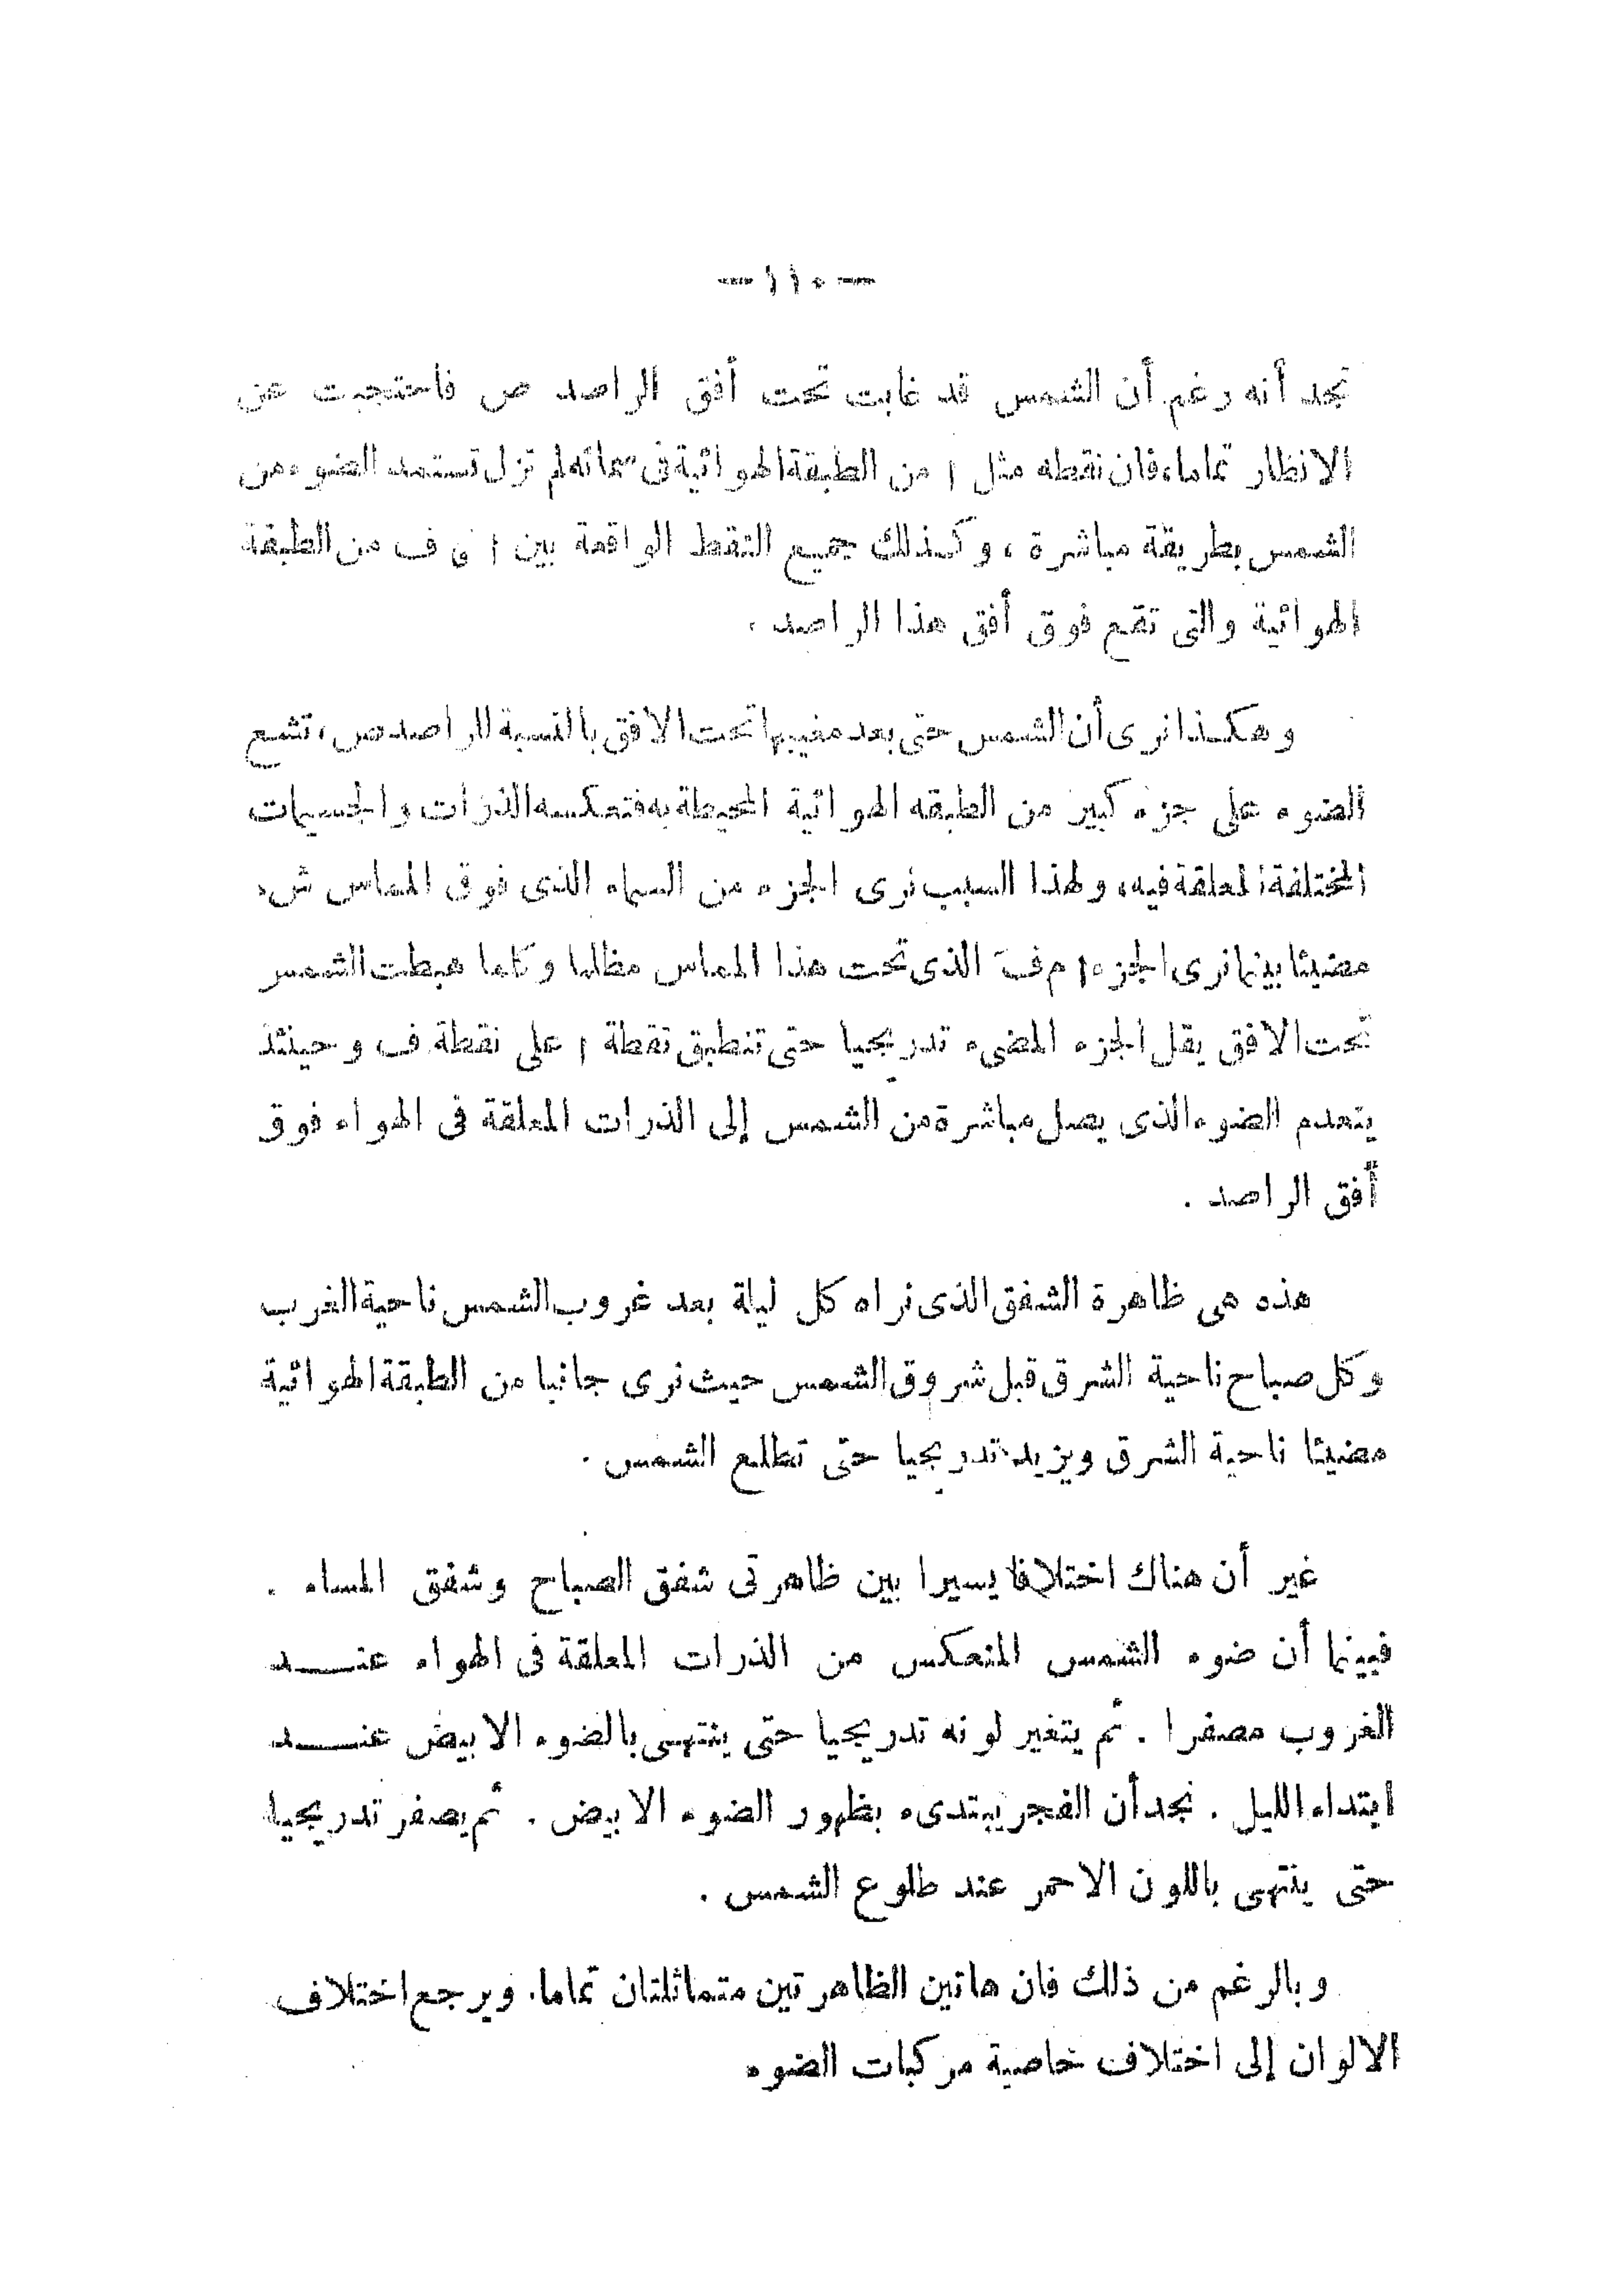 — ١١٠ —
تجد أنه رغم أن الشمس قد غابت تحت أفق الراصد ص فاحتجبت عن
الانظار تماما، فان نقطه مثل ا من الطبقة الهوائية فى سمائه لم تزل تستمد الضوء من
الشمس بطريقة مباشرة ، وكذلك جميع النقط الواقعة بين ا ى ف من الطبقة
الهوائية والتى تقع فوق أفق هذا الراصد .
وهكذا نرى أن الشمس حتى بعد مغيبها تحت الافق بالنسبة للراصد ص ، تشع
الضوء على جزء كبير من الطبقه الهوائية المحيطة به فتعكسه الذرات والجسيمات
المختلفة المعلقة فيه، ولهذا السبب نرى الجزء من السماء الذى فوق المماس ش
مضيئا بينما نرى الجزء ا م فَ الذى تحت هذا المماس مظلما وكلما هبطت الشمس
تحت الافق يقل الجزء المضىء تدريجيا حتى تنطبق نقطة ا على نقطة ف وحينئذ
ينعدم الضوء الذى يصل مباشرة من الشمس إلى الذرات المعلقة فى الهواء فوق
أفق الراصد .
هذه هى ظاهرة الشفق الذى نراه كل ليلة بعد غروب الشمس ناحية الغرب
وكل صباح ناحية الشرق قبل شروق الشمس حيث نرى جانبا من الطبقة الهوائية
مضيئا ناحية الشرق ويزيد تدريجيا حتى تطلع الشمس .
غير أن هناك اختلافا يسيرا بين ظاهرتى شفق الصباح وشفق المساء .
فبينما أن ضوء الشمس المنعكس من الذرات المعلقة فى الهواء عنــد
الغروب مصفرا . ثم يتغير لونه تدريجيا حتى ينتهى بالضوء الابيض عنــد
ابتداء الليل . نجد أن الفجر يبتدىء بظهور الضوء الابيض . ثم يصفر تدريجيا
حتى ينتهى باللون الاحمر عند طلوع الشمس .
وبالرغم من ذلك فان هاتين الظاهرتين متماثلتان تماما. ويرجع اختلاف
الالوان إلى اختلاف خاصية مركبات الضوء